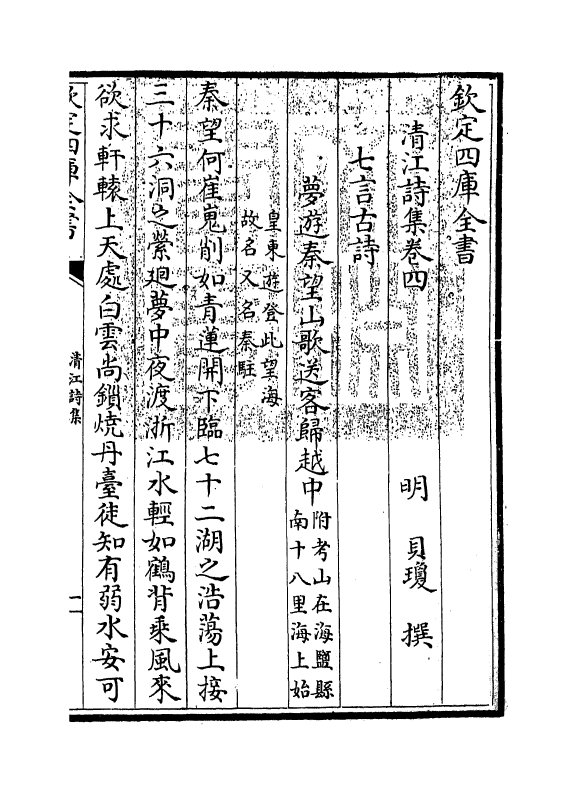 欽定四庫全書
清江詩集卷四
明 貝瓊 撰
七言古詩
夢遊秦望山歌送客歸越中附考山在海鹽縣
南十八里海上始
皇東遊登此望海
故名又名秦駐
秦望何崔嵬削如青蓮開下臨七十二湖之浩蕩上接
三十六洞之縈廻夢中夜渡浙江水輕如鶴背乘風來
欲求軒轅上天處白雲尚鎖燒丹臺徒知有弱水安可
欽定四庫全書
清江詩集
一